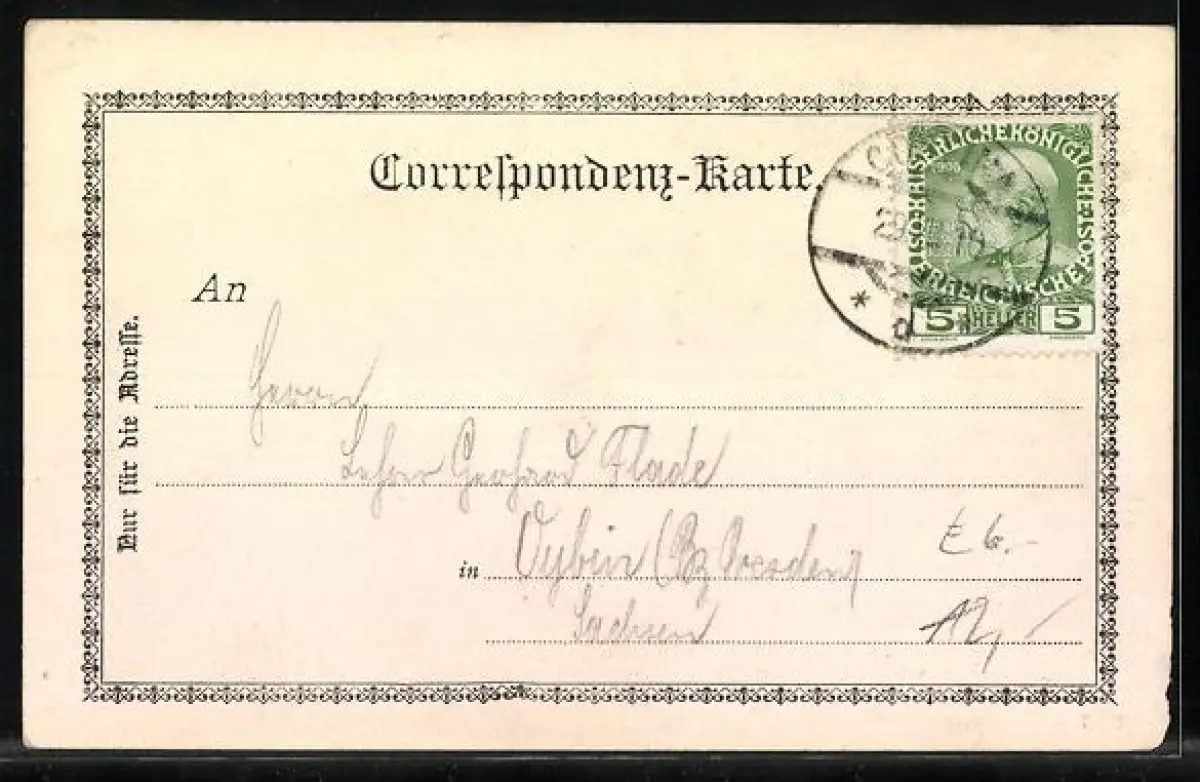 Correſpondenz-Karte.
KAISERLICHE KÖNIGLICHE ÖSTERREICHISCHE POST
5 HELLER 5
An
Nur für die Adreſſe.
Herrn
Lehrer Gerhard Flade
in Oybin (Bz Dresden)
Sachsen
E 6.-
12,-